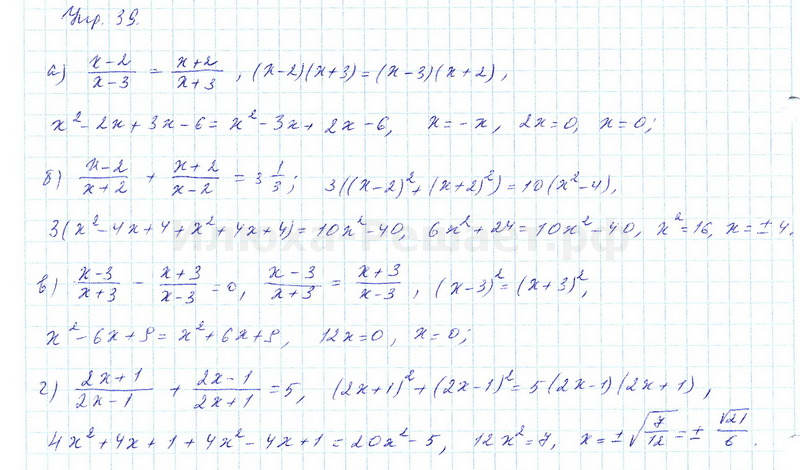 Упр. 39.
а) (x-2)/(x-3) = (x+2)/(x+3), (x-2)(x+3)=(x-3)(x+2),
x²-2x+3x-6=x²-3x+2x-6, x=-x, 2x=0, x=0;
б) (x-2)/(x+2) + (x+2)/(x-2) = 3 1/3; 3((x-2)²+(x+2)²)=10(x²-4),
3(x²-4x+4+x²+4x+4)=10x²-40, 6x²+24=10x²-40, x²=16, x=±4.
в) (x-3)/(x+3) - (x+3)/(x-3) = 0, (x-3)/(x+3) = (x+3)/(x-3), (x-3)²=(x+3)²,
x²-6x+9=x²+6x+9, 12x=0, x=0;
г) (2x+1)/(2x-1) + (2x-1)/(2x+1) = 5, (2x+1)²+(2x-1)²=5(2x-1)(2x+1),
4x²+4x+1+4x²-4x+1=20x²-5, 12x²=7, x=±√(7/12)=±√21/6.
Илюха-Решает.рф